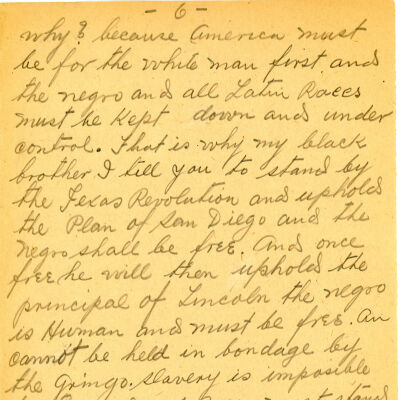 - 6 -
why? because America must
be for the white man first and
the negro and all Latin Races
must be Kept down and under
control. That is why my black
brother I till you to stand by
the Texas Revolution and uphold
the Plan of San Diego and the
negro shall be free. And once
free he will then uphold the
principal of Lincoln the negro
is Human and must be free. An
cannot be held in bondage by
the Gringo. Slavery is imposible